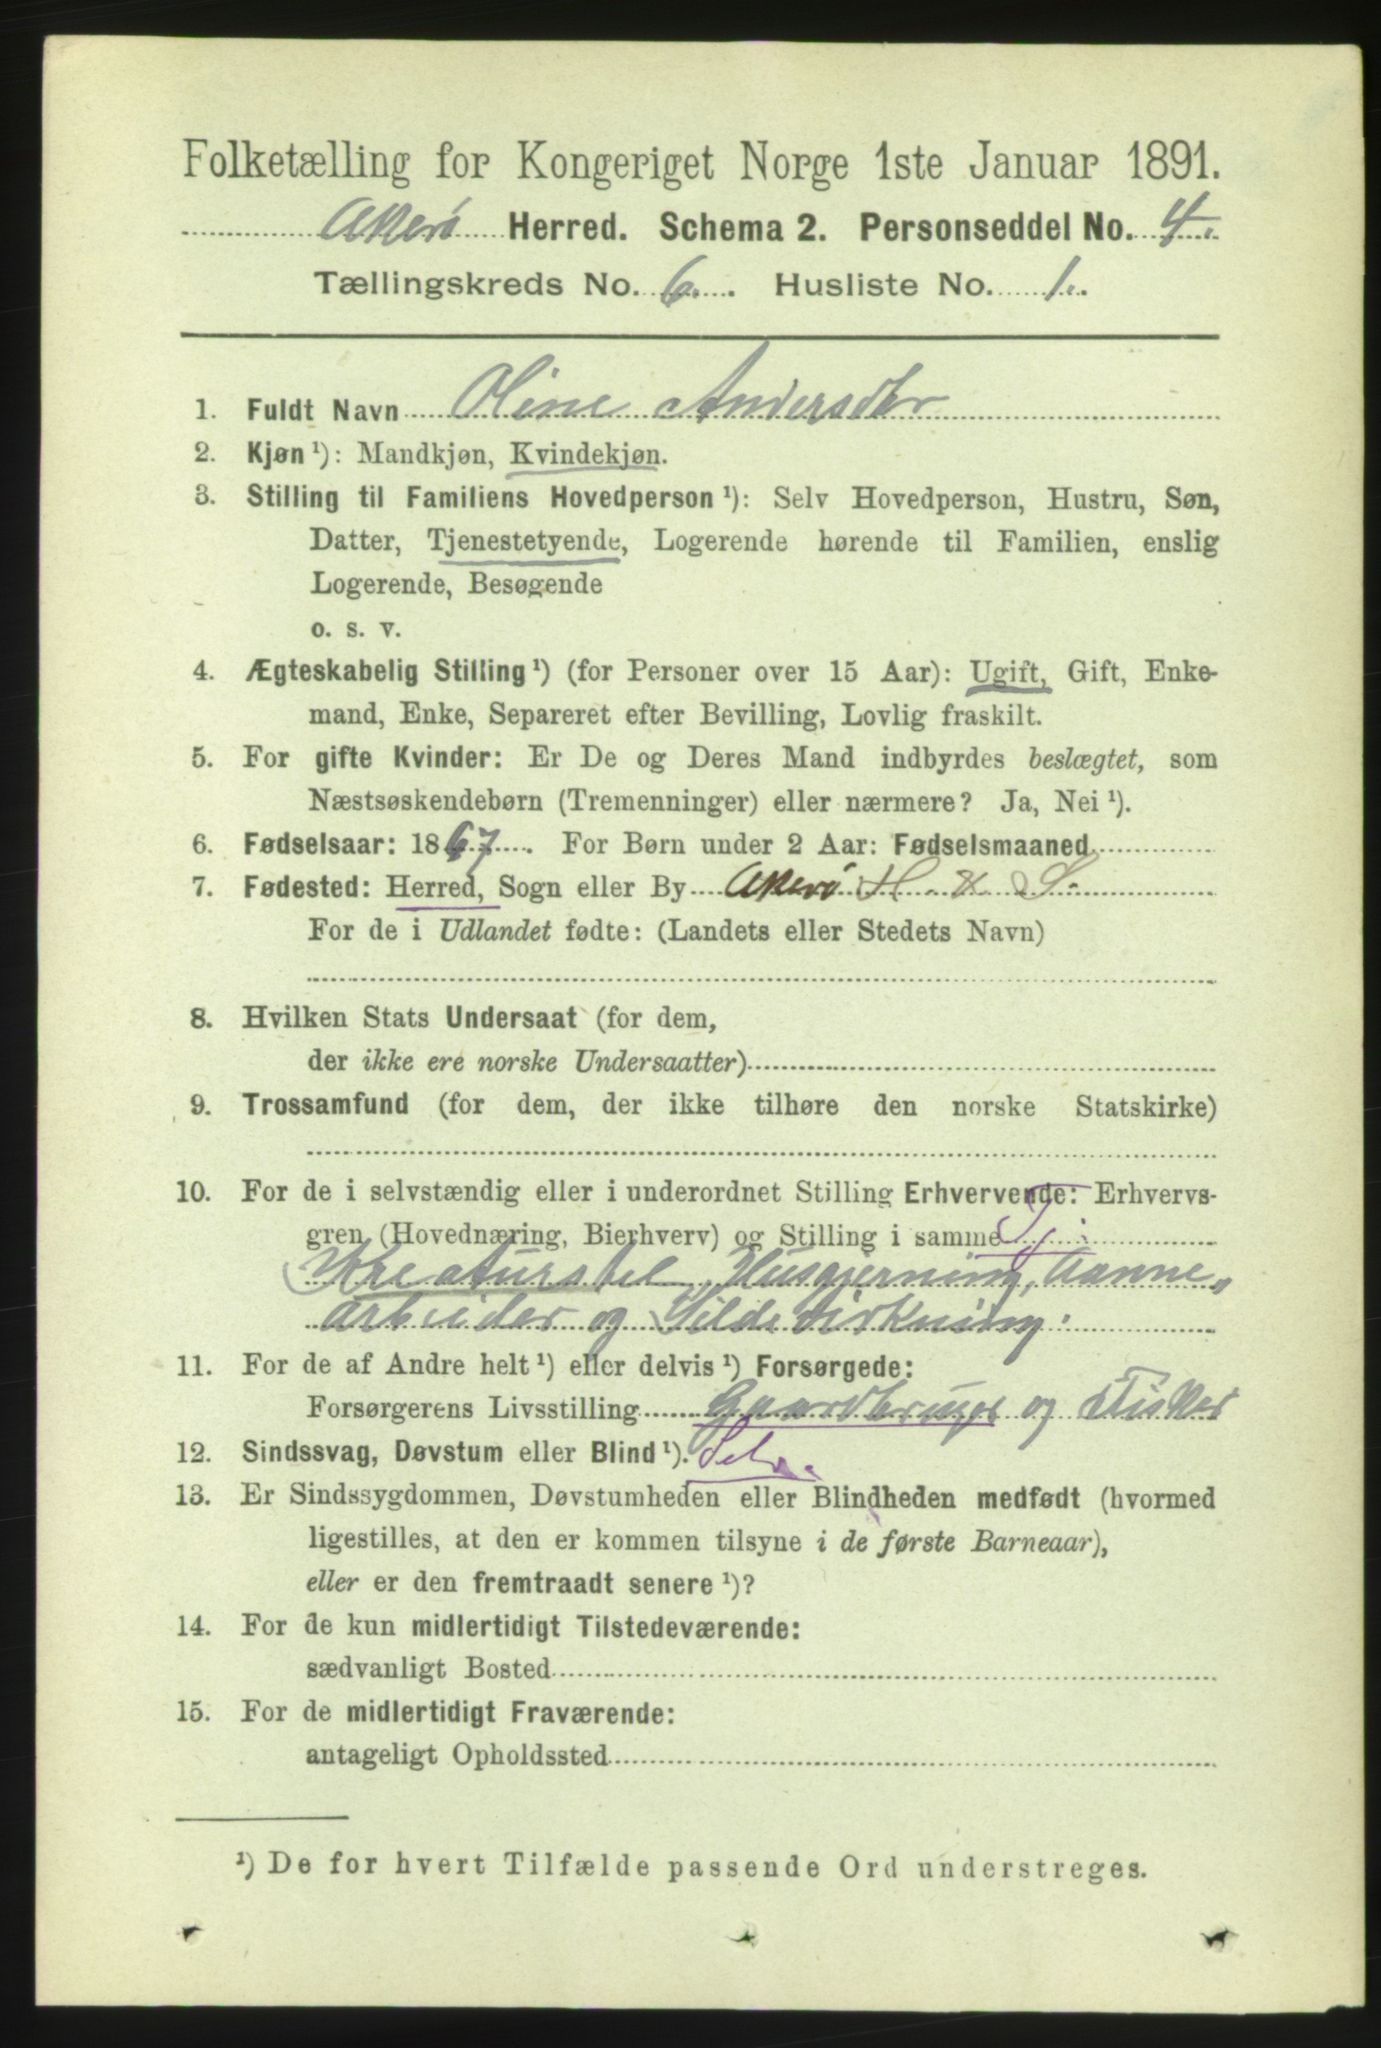 Folketælling for Kongeriget Norge 1ste Januar 1891.
Akerø Herred. Schema 2. Personseddel No. 4.
Tællingskreds No. 6. Husliste No. 1.
1. Fuldt Navn Oline Andersdtr
2. Kjøn ¹): Mandkjøn, Kvindekjøn.
3. Stilling til Familiens Hovedperson ¹): Selv Hovedperson, Hustru, Søn,
Datter, Tjenestetyende, Logerende hørende til Familien, enslig
Logerende, Besøgende
o. s. v.
4. Ægteskabelig Stilling ¹) (for Personer over 15 Aar): Ugift, Gift, Enke-
mand, Enke, Separeret efter Bevilling, Lovlig fraskilt.
5. For gifte Kvinder: Er De og Deres Mand indbyrdes beslægtet, som
Næstsøskendebørn (Tremenninger) eller nærmere? Ja, Nei ¹).
6. Fødselsaar: 1867. For Børn under 2 Aar: Fødselsmaaned
7. Fødested: Herred, Sogn eller By Akerø H. & S.
For de i Udlandet fødte: (Landets eller Stedets Navn)
8. Hvilken Stats Undersaat (for dem,
der ikke ere norske Undersaatter)
9. Trossamfund (for dem, der ikke tilhøre den norske Statskirke)
10. For de i selvstændig eller i underordnet Stilling Erhvervende: Erhvervs-
gren (Hovednæring, Bierhverv) og Stilling i samme Tj.
Kreaturstel, Husgjerning, Aanne-
arbeider og Sildevirkning.
11. For de af Andre helt ¹) eller delvis ¹) Forsørgede:
Forsørgerens Livsstilling Gaardbruger og Fisker
12. Sindssvag, Døvstum eller Blind ¹). Selv.
13. Er Sindssygdommen, Døvstumheden eller Blindheden medfødt (hvormed
ligestilles, at den er kommen tilsyne i de første Barneaar),
eller er den fremtraadt senere ¹)?
14. For de kun midlertidigt Tilstedeværende:
sædvanligt Bosted
15. For de midlertidigt Fraværende:
antageligt Opholdssted
¹) De for hvert Tilfælde passende Ord understreges.